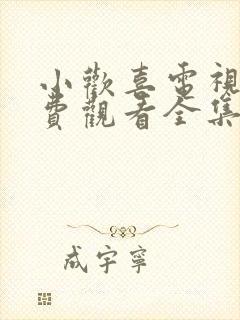 小歡喜電視
費觀看全集
成宇寧